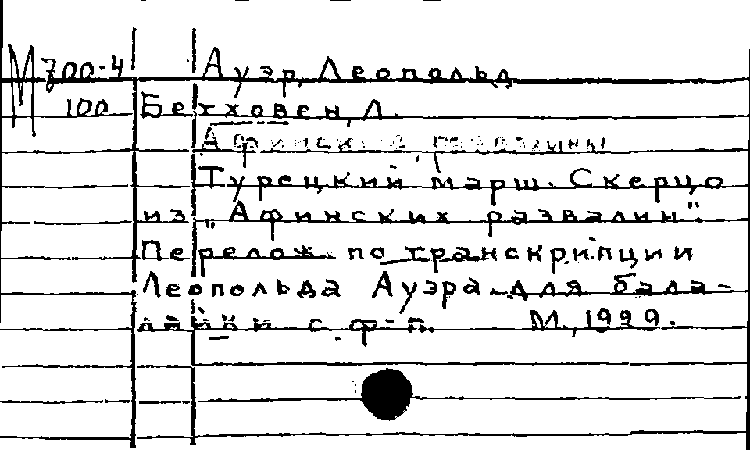 М 700-4 Ауэр, Леопольд
100 Бетховен, Л.
Афинские развалины
Турецкий марш. Скерцо
из „Афинских развалин".
Перелож. по транскрипции
Леопольда Ауэра для бала-
лайки с ф-п. М., 1929.